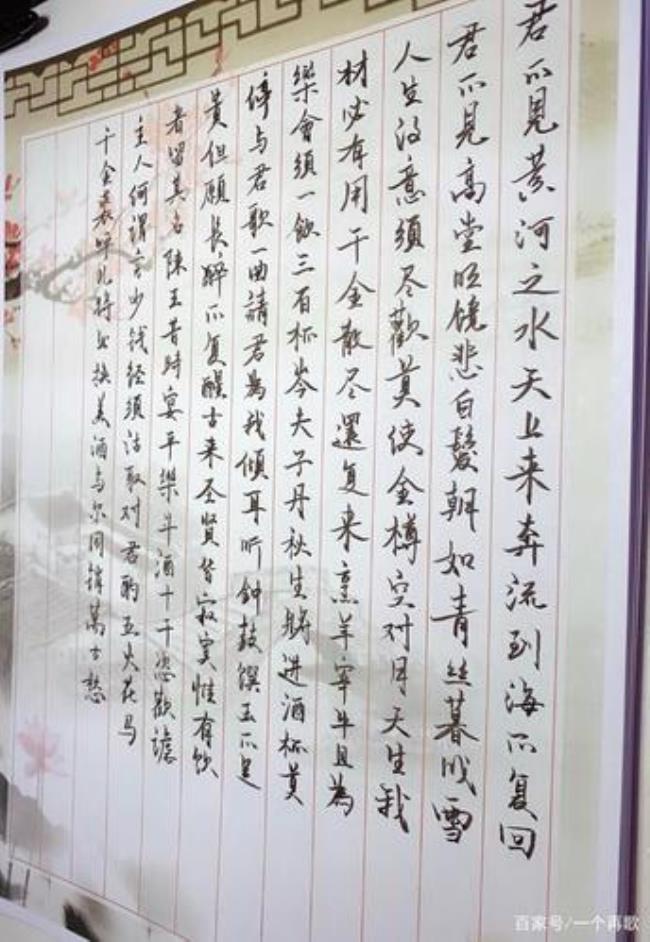 君不見黄河之水天上来奔流到海不复回
君不見高堂明镜悲白髮朝如青丝暮成雪
人生得意须尽歡莫使金樽空对月天生我
材必有用千金散尽還复来烹羊宰牛且為
樂會须一飲三百杯岑夫子丹秋生將进酒杯莫
停与君歌一曲請君為我倾耳听钟鼓馔玉不足
贵但願长醉不复醒古来圣贤皆寂寞惟有饮
者留其名陳王昔時宴平樂斗酒十千恣歡谑
主人何謂言少钱径须沽取对君酌五花马
千金裘呼儿将出换美酒与尔同销萬古愁
百家号/一个再歌